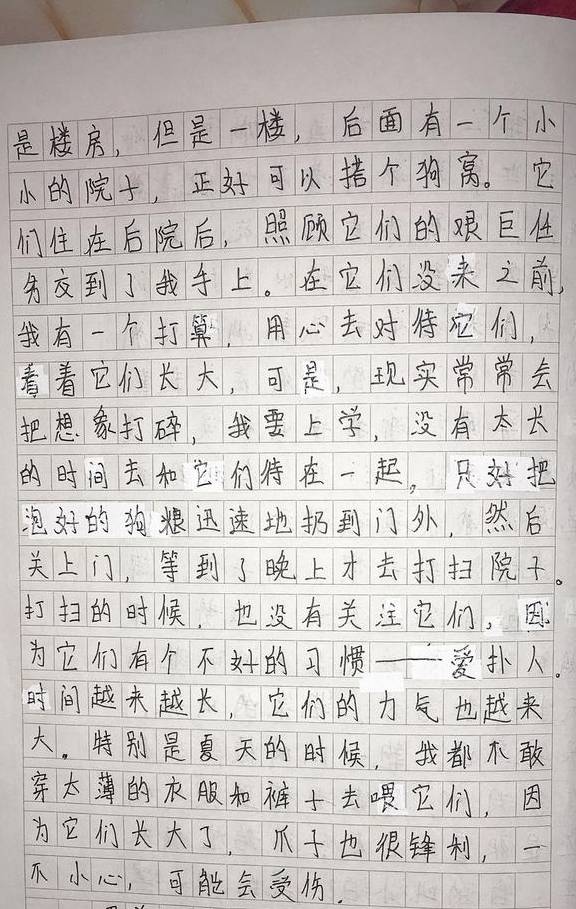 是楼房，但是一楼，后面有一个小
小的院子，正好可以搭个狗窝。它
们住在后院后，照顾它们的艰巨任
务交到了我手上。在它们没来之前，
我有一个打算，用心去对待它们，
看着它们长大，可是，现实常常会
把想象打碎，我要上学，没有太长
的时间去和它们待在一起，只好把
泡好的狗粮迅速地扔到门外，然后
关上门，等到了晚上才去打扫院子。
打扫的时候，也没有关注它们，因
为它们有个不好的习惯——爱扑人。
时间越来越长，它们的力气也越来
大。特别是夏天的时候，我都不敢
穿太薄的衣服和裤子去喂它们，因
为它们长大了，爪子也很锋利，一
不小心，可能会受伤。